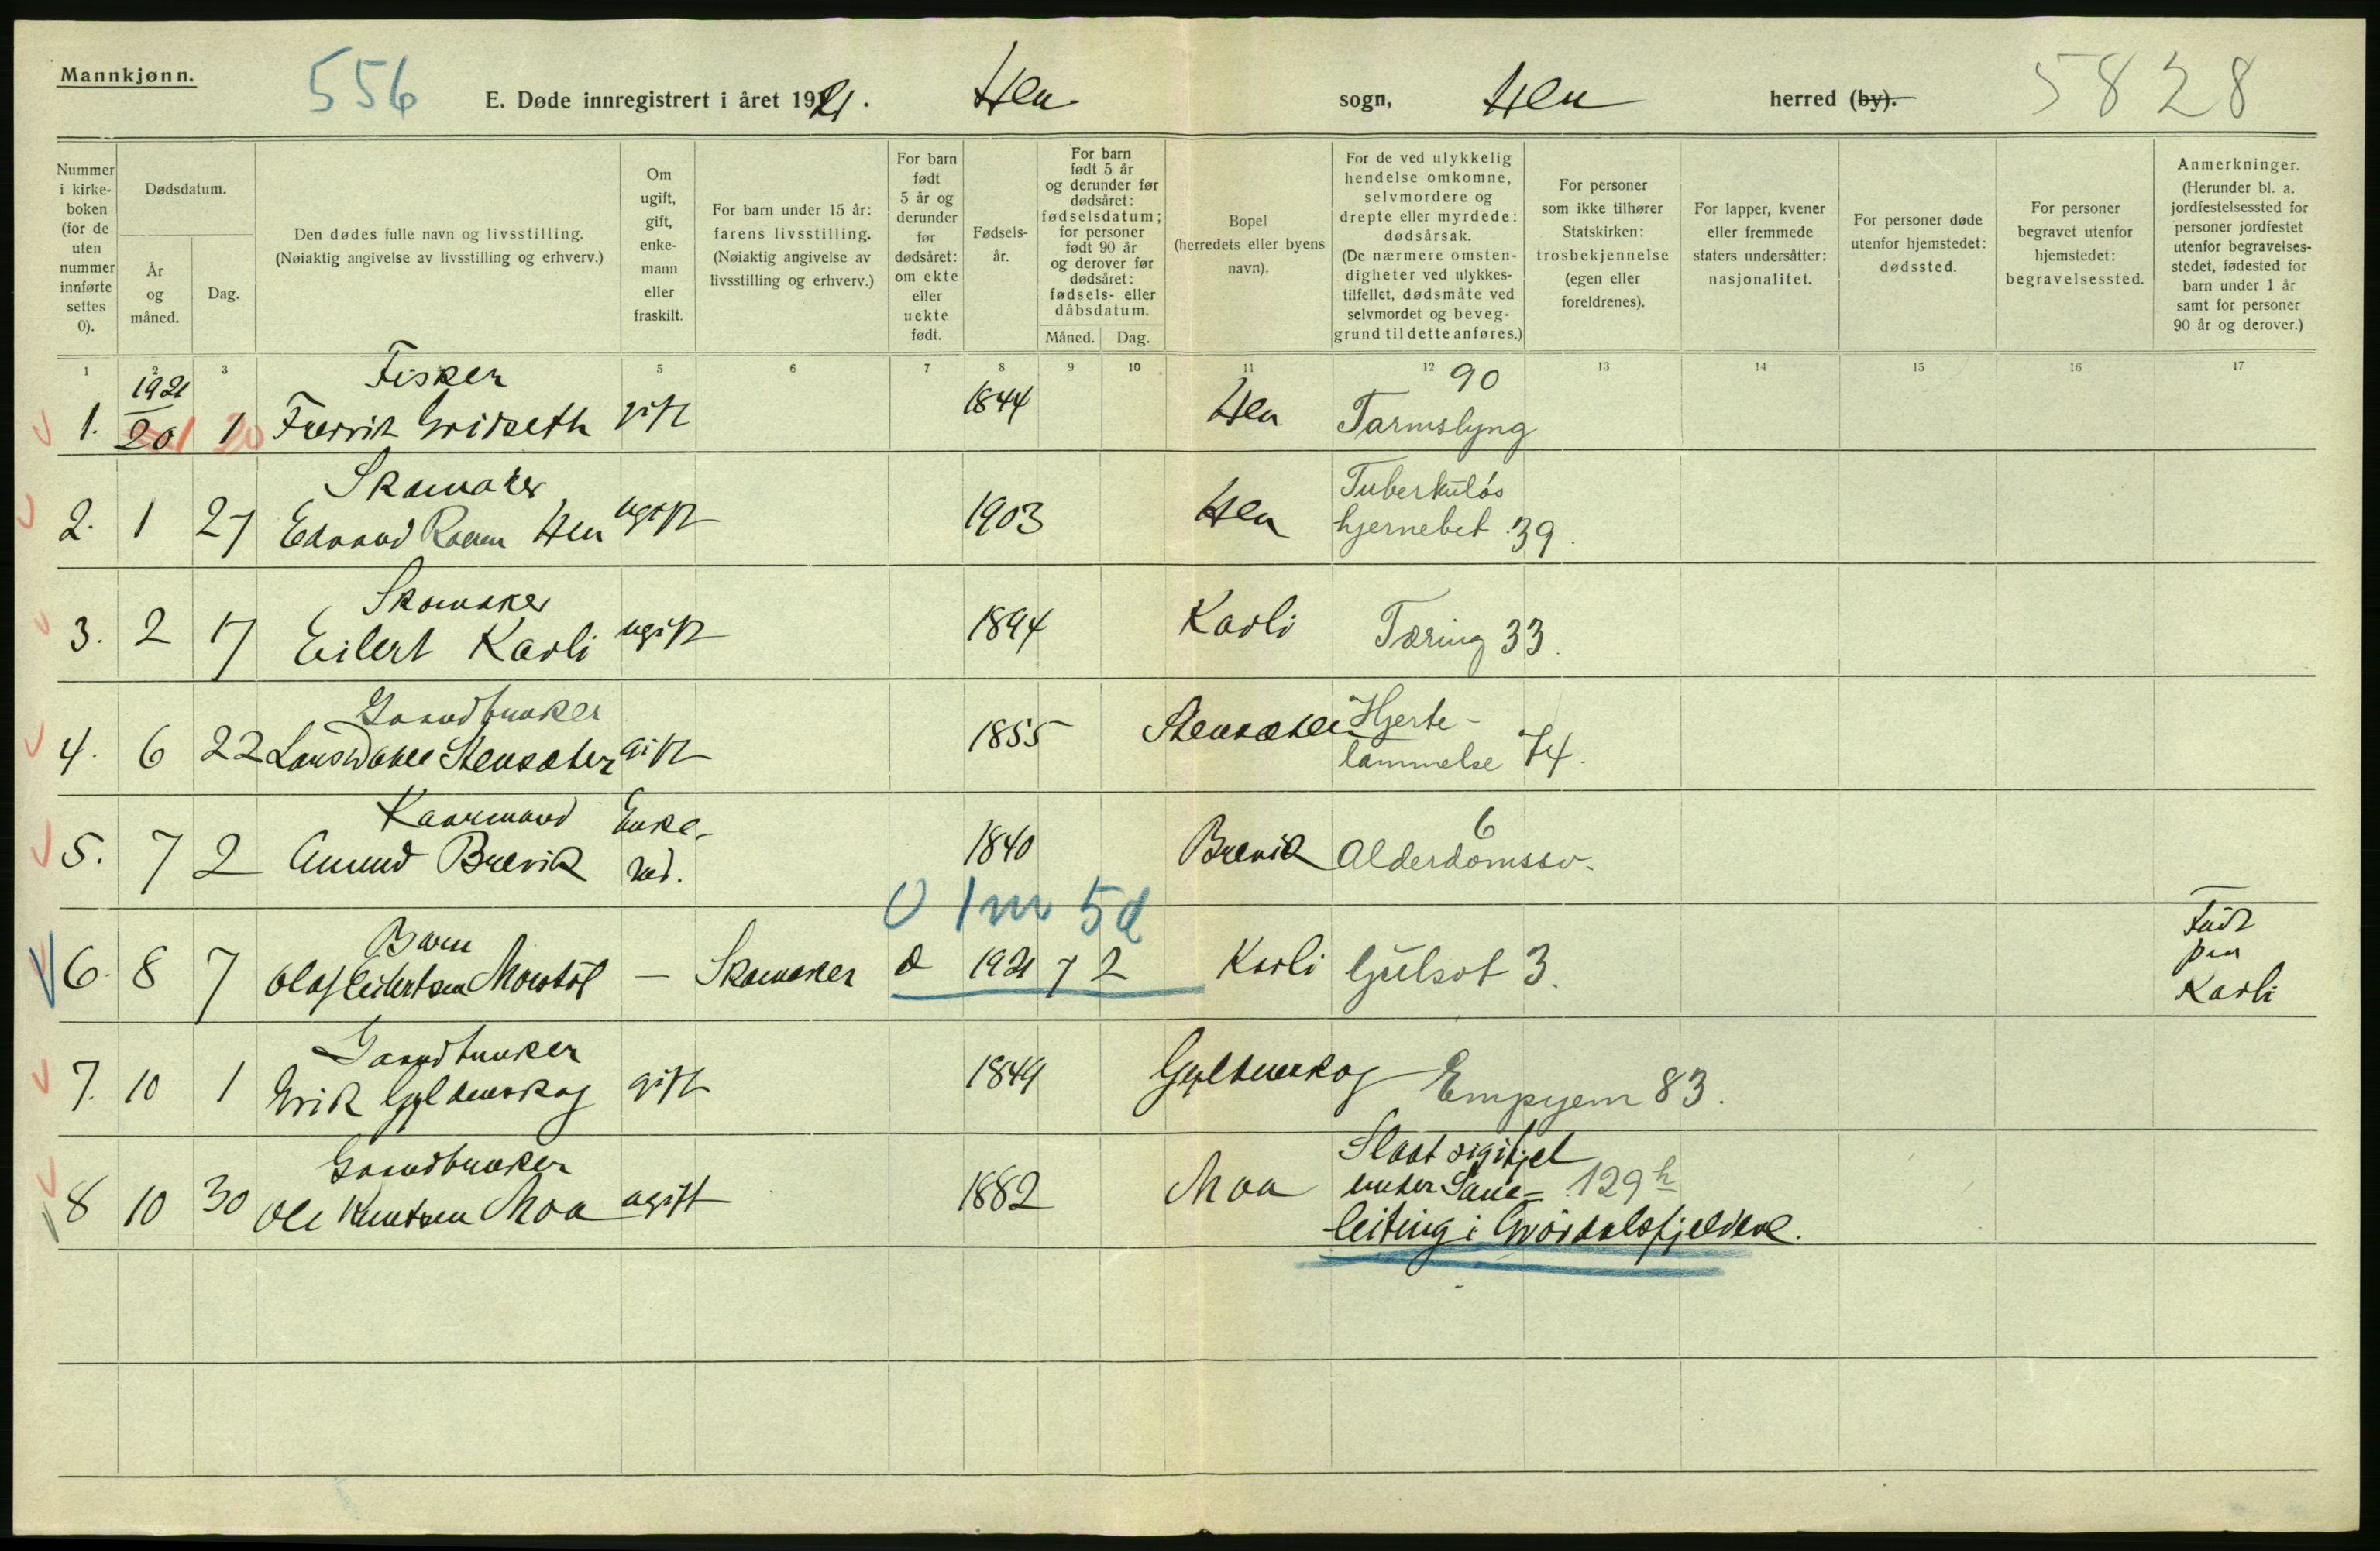 Mannkjønn.
556
E. Døde innregistrert i året 1921. Hen sogn, Hen herred (by).
5828
Nummer i kirkeboken (for de uten nummer innførte settes 0).
Dødsdatum.
År og måned.
Dag.
Den dødes fulle navn og livsstilling.
(Nøiaktig angivelse av livsstilling og erhverv.)
Om ugift, gift, enkemann eller fraskilt.
For barn under 15 år: farens livsstilling.
(Nøiaktig angivelse av livsstilling og erhverv.)
For barn født 5 år og derunder før dødsåret: om ekte eller uekte født.
Fødselsår.
For barn født 5 år og derunder før dødsåret: fødselsdatum; for personer født 90 år og derover før dødsåret: fødsels- eller dåbsdatum.
Måned. Dag.
Bopel (herredets eller byens navn).
For de ved ulykkelig hendelse omkomne, selvmordere og drepte eller myrdede: dødsårsak.
(De nærmere omstendigheter ved ulykkestilfellet, dødsmåte ved selvmordet og beveggrund til dette anføres.)
For personer som ikke tilhører Statskirken: trosbekjennelse (egen eller foreldrenes).
For lapper, kvener eller fremmede staters undersåtter: nasjonalitet.
For personer døde utenfor hjemstedet: dødssted.
For personer begravet utenfor hjemstedet: begravelsessted.
Anmerkninger.
(Herunder bl. a. jordfestelsessted for personer jordfestet utenfor begravelsesstedet, fødested for barn under 1 år samt for personer 90 år og derover.)
1 2 3 5 6 7 8 9 10 11 12 13 14 15 16 17
1921 Fisker 90
1. 20 1 1 20 Gridseth gift 1844 Hen Tarmslyng
Skomaker Tuberkuløs
2. 1 27 Edvard Hen ugift 1903 Hen hjernebet. 39.
Skomaker
3. 2 17 Eilert Kavli ugift 1894 Kavli Tæring 33.
Gaardbruker Hjerte-
4. 6 22 Lars Stensæter gift 1855 Stensæter lammelse 74.
Kaarmand Enke- 6
5. 7 2 Amund Brevik md. 1840 Brevik Alderdomssv.
0 1m 5d
Barn Født
6. 8 7 Olaf Eilertsen — Skomaker 1921 7 2 Kavli Gulsot 3. paa
Kavli
Gaardbruker
7. 10 1 Erik Gyldenskog gift 1849 Gyldenskog Empyem 83.
Gaardbruker Slaat sig ihjel
8 10 30 Ole Knutsen Moa ugift 1882 Moa under Saue- 129h
leiting i Grøvdalsfjeldene.